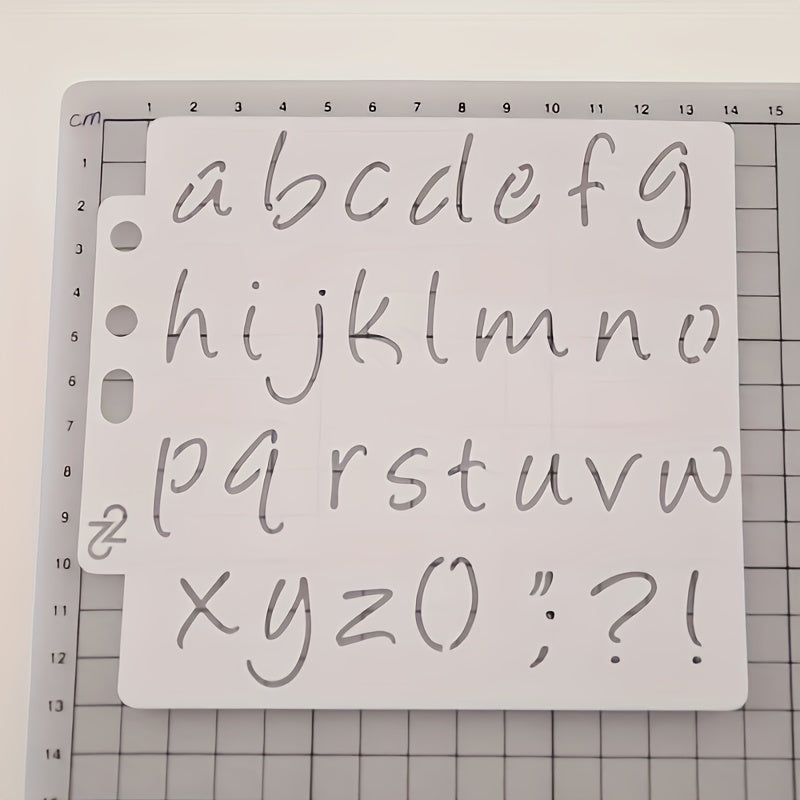 1 2 3 4 5 6 7 8 9 10 11 12 13 14 15
cm
1
2
3
4
5
6
7
8
9
10
11
12
13
14
a b c d e f g
h i j k l m n o
p q r s t u v w
x y z () " ; ? !